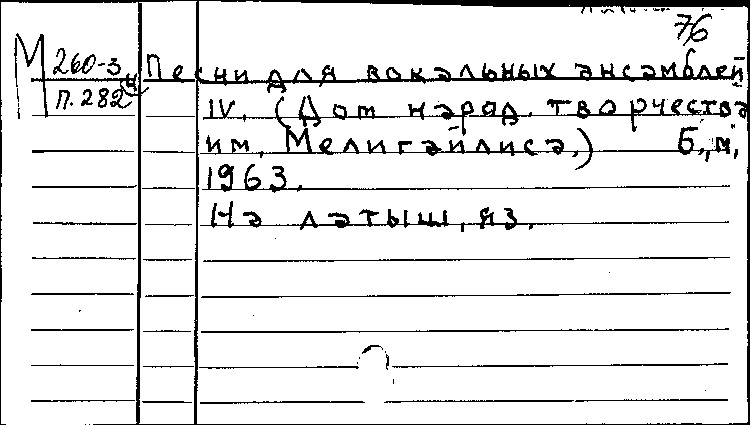 76
М 260-3
П. 282
Песни для вокальных ансамблей
IV. (Дом народ. творчества
им. Мелнгайлиса.) Б., м.,
1963.
На латыш. яз.